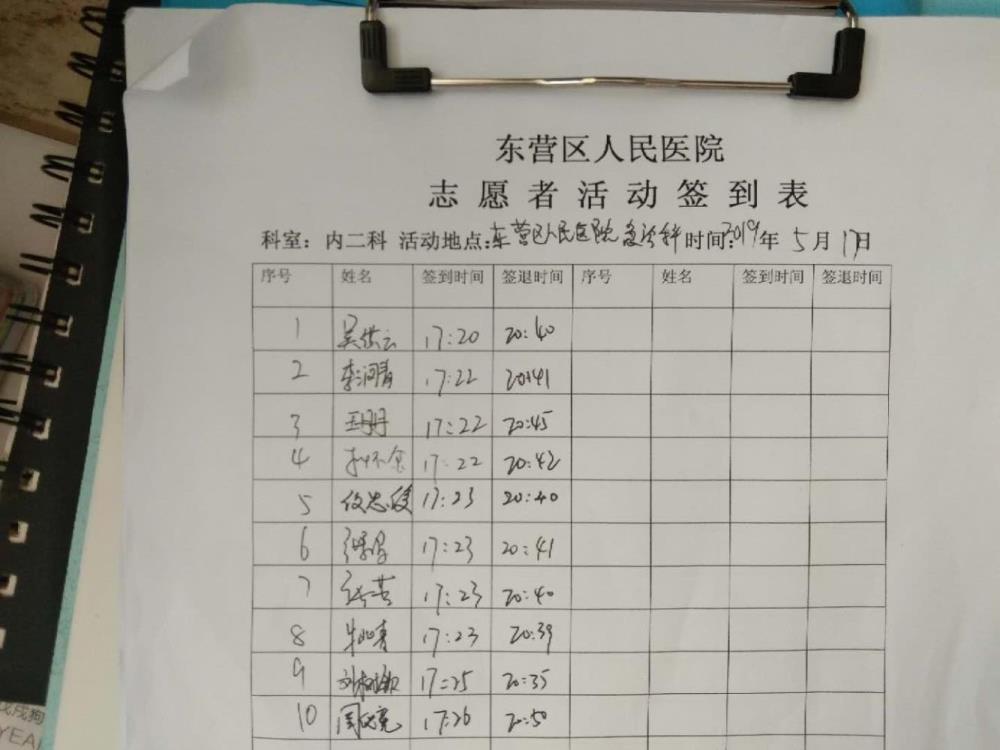 东营区人民医院
志愿者活动签到表
科室：内二科 活动地点:东营区人民医院急诊科 时间:2019年 5月17日
序号 姓名 签到时间 签退时间 序号 姓名 签到时间 签退时间
1 17:20 20:40
2 17:22 20:41
3 王丹丹 17:22 20:45
4 17:22 20:42
5 17:23 20:40
6 17:23 20:41
7 17:23 20:40
8 17:23 20:39
9 17:25 20:35
10 17:26 20:50
戊戌狗
YEAR